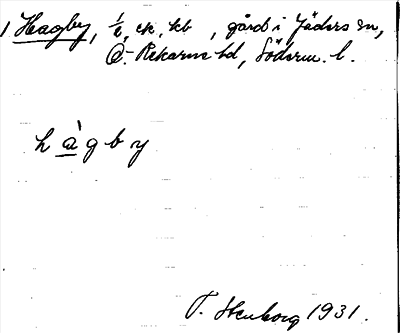 1 Hagby, 1/2, ek, kb, gård i Jäders sn,
Ö. Rekarne hd, Söderm. l.
hàgby
T. Stenborg 1931.